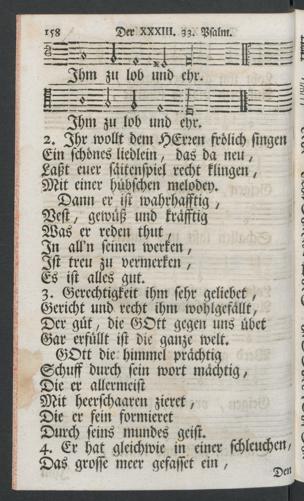 158 Der XXXIII. 33. Psalm.
Ihm zu lob und ehr.
Ihm zu lob und ehr.
2. Ihr wollt dem HErren frölich singen
Ein schönes liedlein, das da neu,
Laßt euer säitenspiel recht klingen,
Mit einer hübschen melodey.
Dann er ist wahrhafftig,
Vest, gewüß und kräfftig
Was er reden thut,
In all'n seinen werken,
Ist treu zu vermerken,
Es ist alles gut.
3. Gerechtigkeit ihm sehr geliebet,
Gericht und recht ihm wohlgefällt,
Der güt, die GOtt gegen uns übet
Gar erfüllt ist die ganze welt.
GOtt die himmel prächtig
Schuff durch sein wort mächtig,
Die er allermeist
Mit heerschaaren zieret,
Die er fein formieret
Durch seins mundes geist.
4. Er hat gleichwie in einer schleuchen,
Das grosse meer gefasset ein,
Den